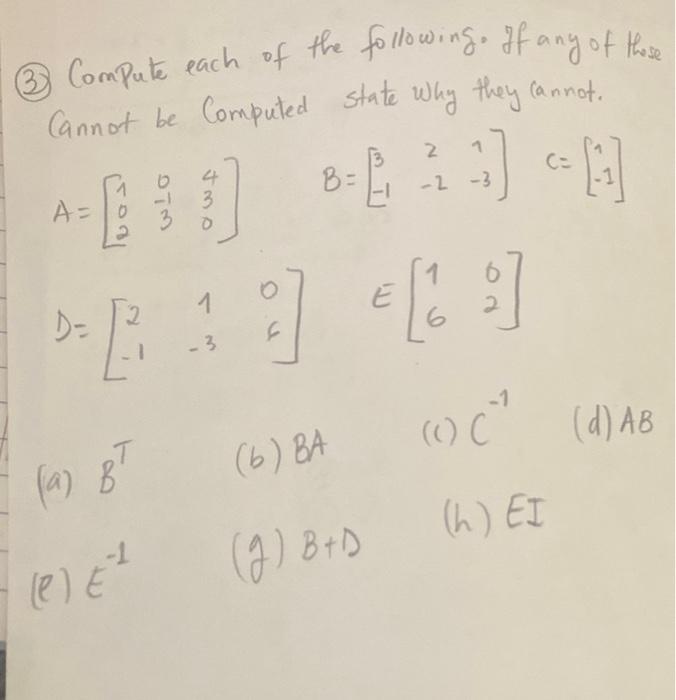 ③ Compute each of the following. If any of these
Cannot be Computed state Why they Cannot.
A = [1 0 4; 0 -1 3; 2 3 0] B = [3 2 1; -1 -2 -3] C = [1; -1]
D = [2 1 0; -1 -3 6] E [1 0; 6 2]
(a) B^T (b) BA (c) C^-1 (d) AB
(e) E^-1 (g) B+D (h) EI